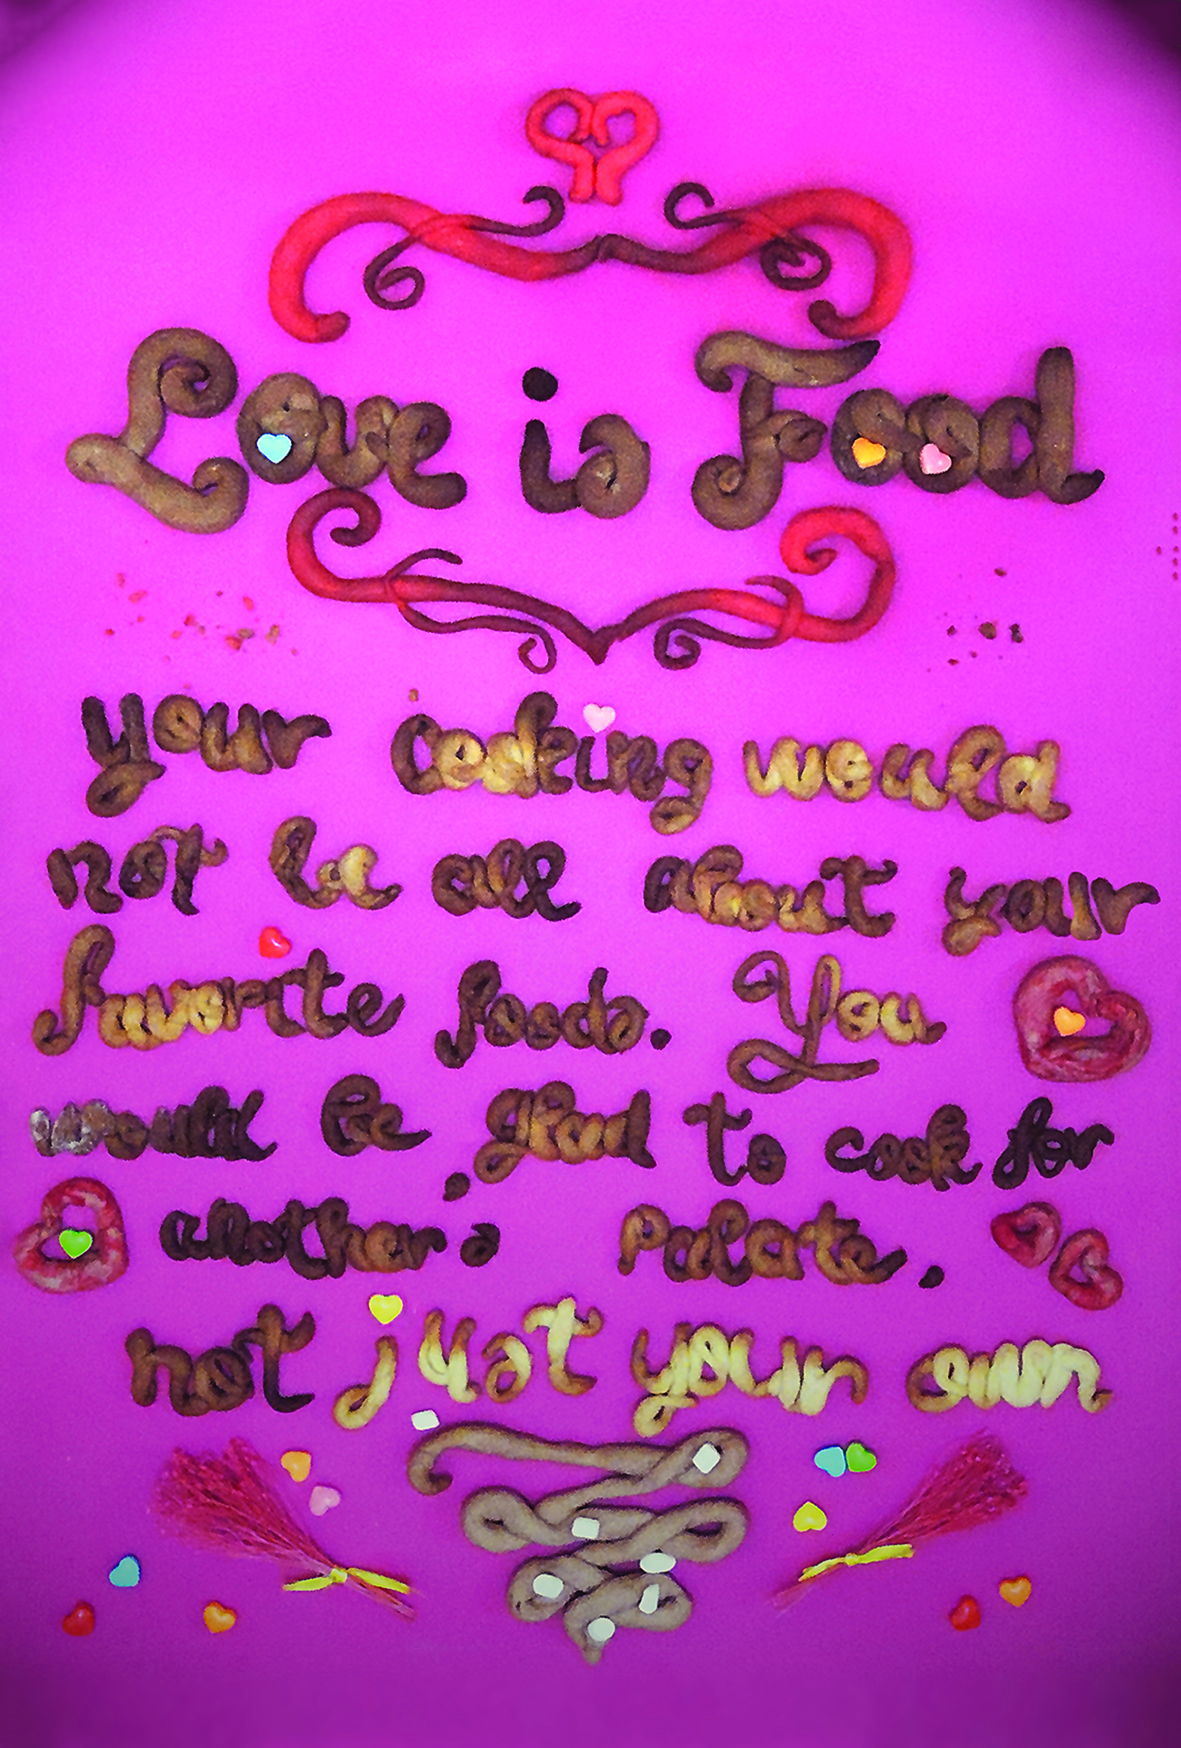 Love is Food
your cooking would
not be all about your
favorite foods. You
would be glad to cook for
another's palate,
not just your own